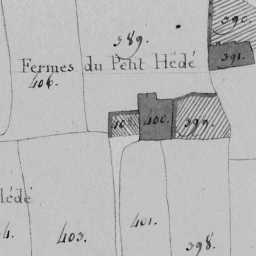 390.
389.
391.
Fermes du Petit Hédé
406.
400.
399.
Hédé
401.
403.
398.